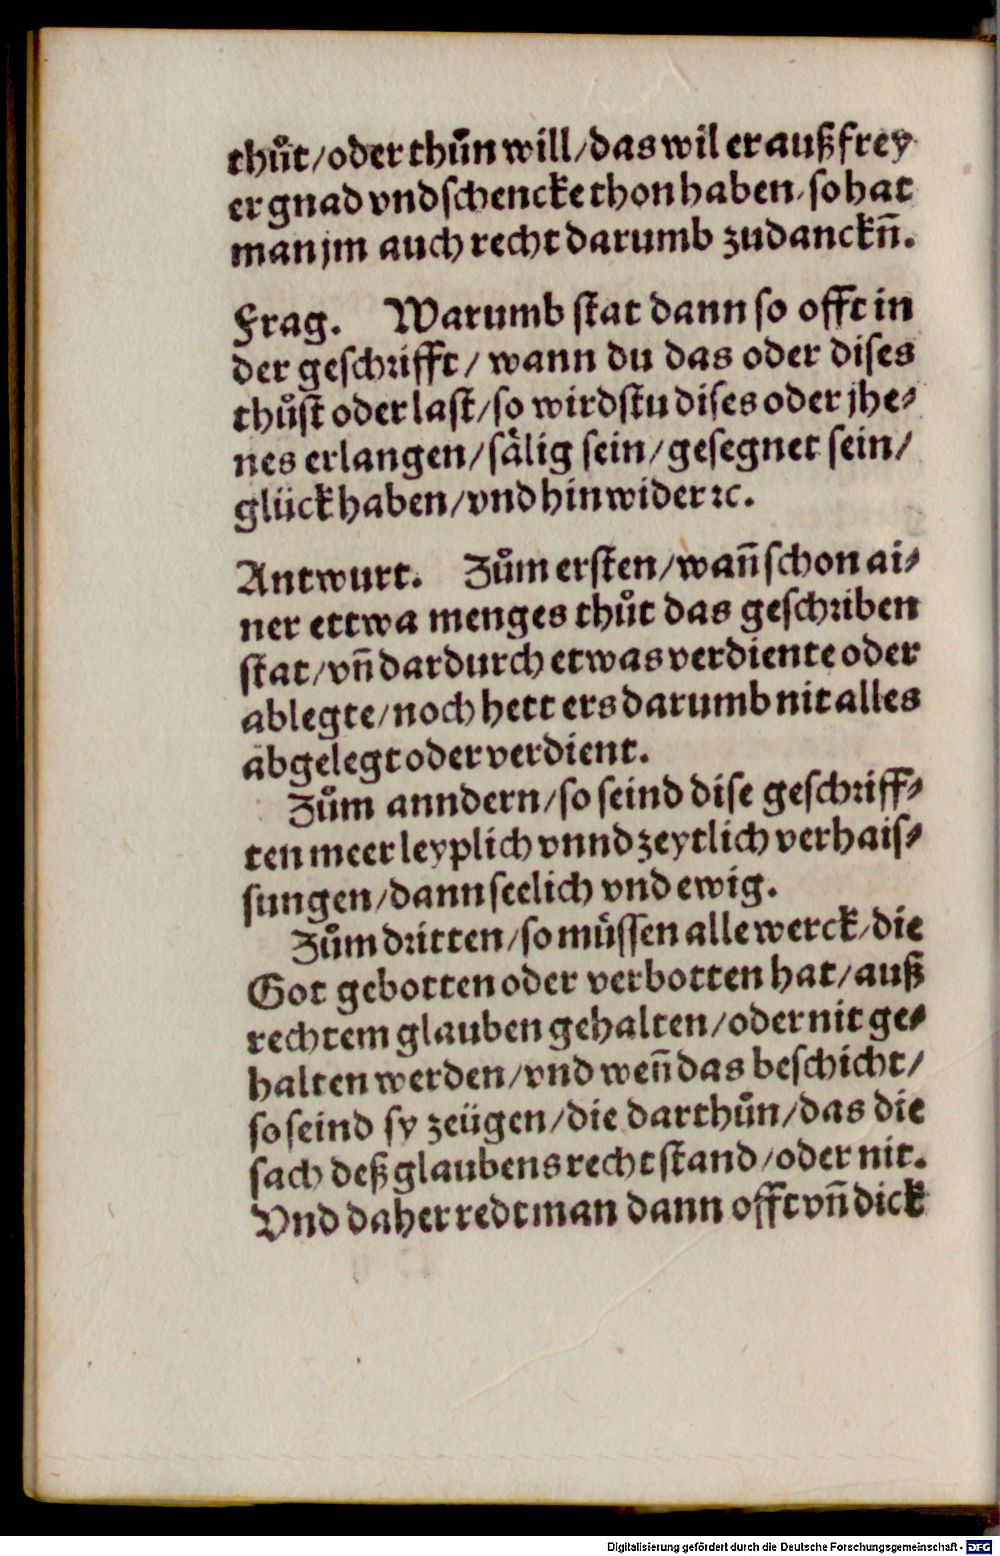 thůt/oder thůn will/das wil er auß frey
er gnad vnd schencke thon haben/so hat
man jm auch recht darumb zudanckn̄.
Frag. Warumb stat dann so offt in
der geschrifft/ wann du das oder dises
thůst oder last/so wirdstu dises oder jhe⸗
nes erlangen/sälig sein/gesegnet sein/
glück haben/vnd hinwider ꝛc.
Antwurt. Zům ersten/wañ schon ai⸗
ner ettwa menges thůt das geschriben
stat/vñ dardurch etwas verdiente oder
ablegte/noch hett ers darumb nit alles
abgelegt oder verdient.
Zům anndern/so seind dise geschriff⸗
ten meer leyplich vnnd zeytlich verhais⸗
sungen/dann seelich vnd ewig.
Zům dritten/so müssen alle werck/die
Got gebotten oder verbotten hat/auß
rechtem glauben gehalten/oder nit ge⸗
halten werden/vnd weñ das beschicht/
so seind sy zeügen/die darthůn/das die
sach deß glaubens recht stand/oder nit.
Vnd daher redt man dann offt vñ dick
Digitalisierung gefördert durch die Deutsche Forschungsgemeinschaft - DFG